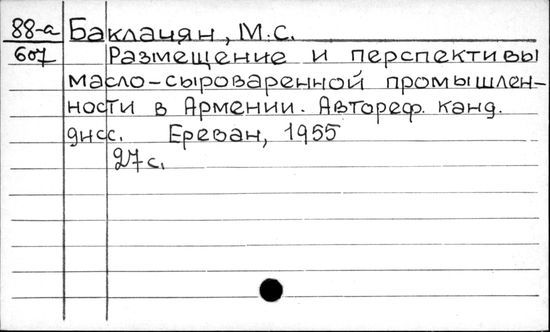 88-а Баклачян, М.С.
607 Размещение и перспективы
масло-сыроваренной промышлен-
ности в Армении. Автореф. канд.
дисс. Ереван, 1955
27 с.